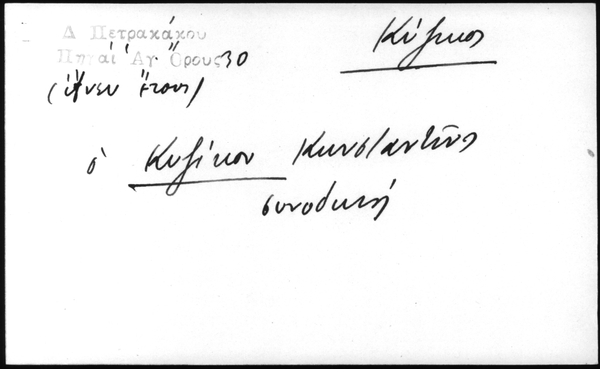 Δ Πετρακάκου
Πηγαί Ἁγ Ὄρους 30
(ἄνευ ἔτους)
Κύζικος
ὁ Κυζίκου Κωνσταντῖνος
συνοδική